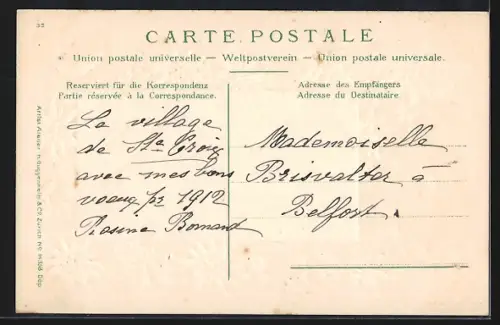 22
CARTE POSTALE
Union postale universelle — Weltpostverein — Union postale universale.
Reserviert für die Korrespondenz
Partie réservée à la Correspondance.
Adresse des Empfängers
Adresse du Destinataire.
La village
de Ste Croix
avec mes bons
voeux pr 1912
Rosina Bornand
Mademoiselle
Brisvalter à
Belfort.